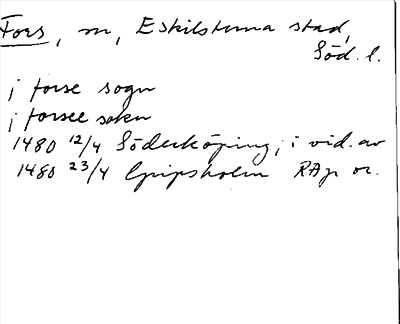 Fors, m, Eskilstuna stad,
Söd. l.
j forse sogn
j forsee sokn
1480 12/4 Söderköping, i vid. av
1480 23/4 Gripsholm RAp or.